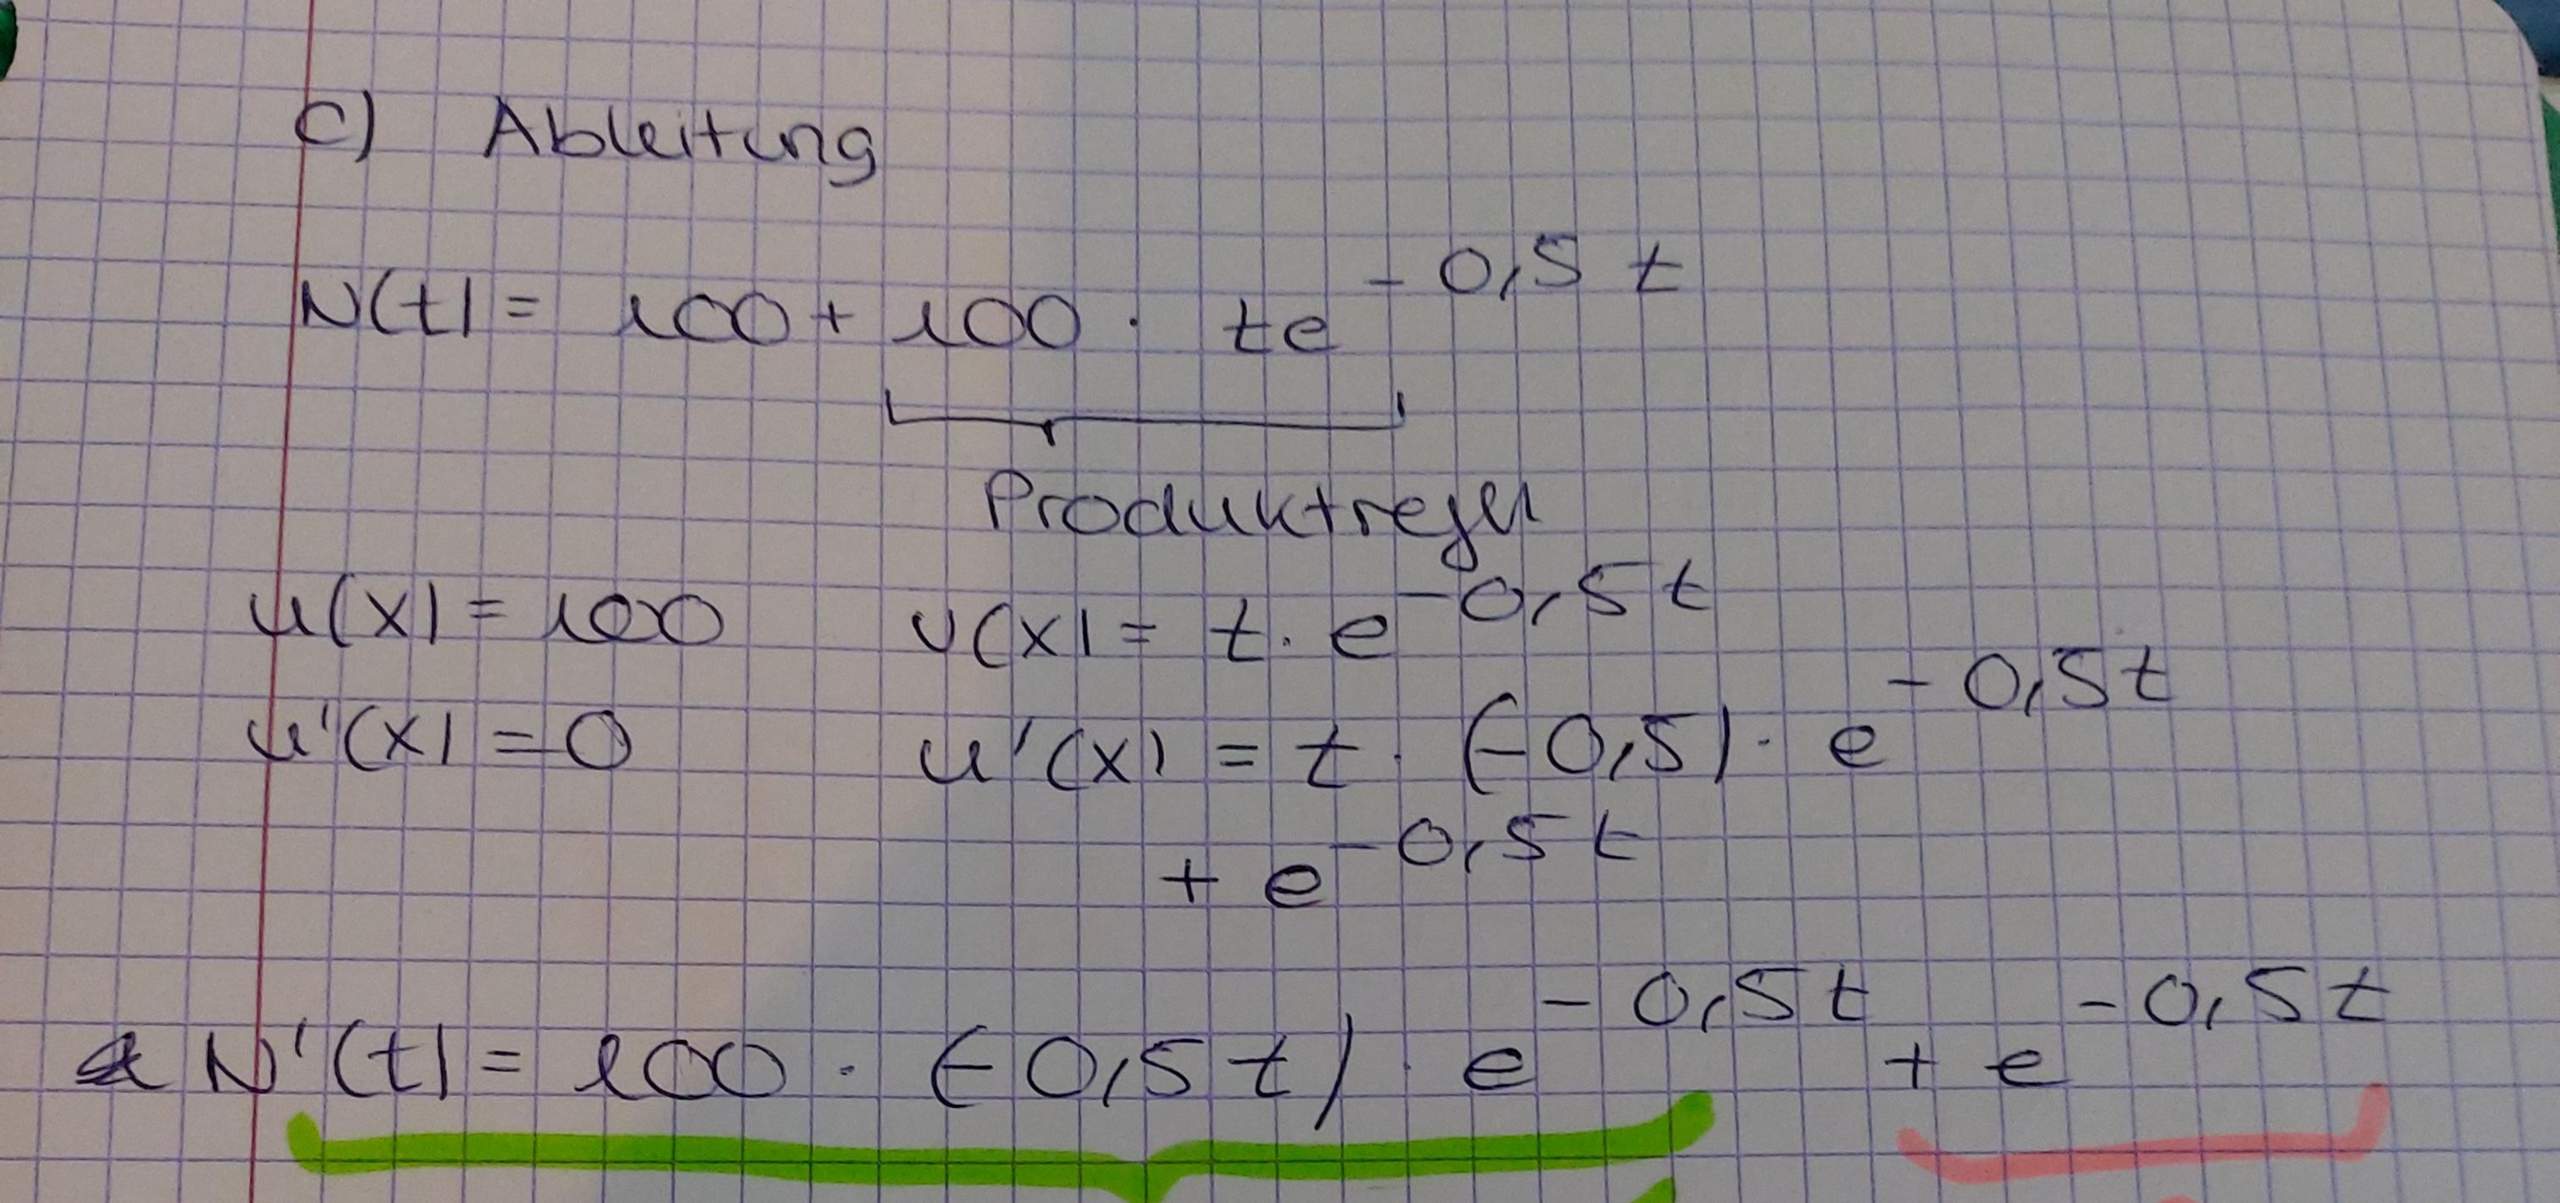 c) Ableitung
N(t) = 100 + 100 · te^-0,5 t
Produktregel
u(x) = 100 v(x) = t · e^-0,5t
u'(x) = 0 u'(x) = t · (-0,5) · e^-0,5t
+ e^-0,5t
N'(t) = 100 · (-0,5 t) · e^-0,5t + e^-0,5t